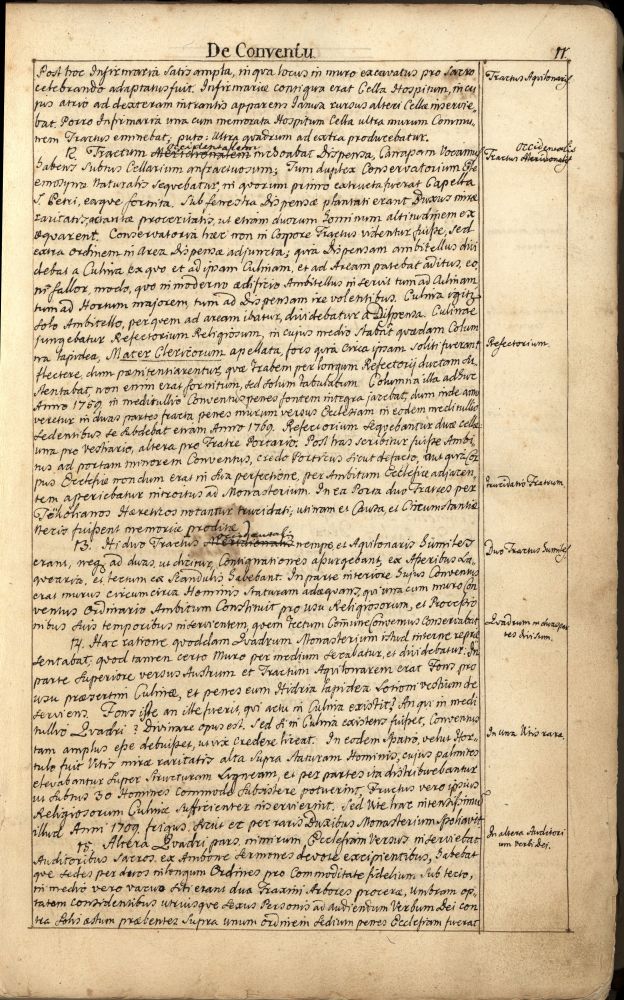 De Conventu
11.
Post hoc Infirmaria satis ampla, in qua locus in muro excavatus pro Sacro
celebrando adaptatus fuit. Infirmariæ contigua erat Cella Hospitum, in cu
jus atrio ad dexteram intrantis apparens Janua rursus alteri Cellæ inservie
bat. Porro Infirmaria una cum memorata Hospitum Cella ultra murum Commu
nem Tractus eminebat, puto: ultra quadrum ad extra producebatur.
Tractus Aquilonaris
12. Tractum Meridionalem inchoabat Dispensa, Canapam vocamus
Occidentalem
habens subtus Cellarium anfractuosum; Tum duplex Conservatorium
Eleemosyna naturalis sequebatur, in quorum primo extructa fuerat Capella
Occidentalis
Tractus Meridionalis
S. Petri, eaque fornita. Sub fenestra Dispensæ plantati erant Buxus miræ
raritatis, tantæ proceritatis, ut etiam duorum hominum altitudinem ex
æquarent. Conservatoria hæc non in Corpore Tractus videntur fuisse, sed
extra ordinem in Area Dispensæ adjuncta; quia Dispensam ambitellus divi
debat a Culina ex quo et ad ipsam Culinam, et ad Aream patebat aditus, eo,
ni fallor, modo, quo in moderno ædificio Ambitellus inservit tum ad Culinam,
tum ad Hortum majorem, tum ad Dispensam ire volentibus. Culina igitur
solo Ambitello, per quem ad aream ibatur, dividebatur a Dispensa. Culinæ
jungebatur Refectorium Religiosum, in cujus medio stabat quædam Colum
na lapidea, Mater Clericorum apellata, fors quia circa ipsam soliti fuerant
Refectorium.
flectere, dum pænitentiarentur, quæ trabem per longum Refectorij ductam su
stentabat, non enim erat fornitum, sed solum tabulatum. Columna illa adhuc
Anno 1759. in meditullio Conventus penes fontem integra jacebat, dum inde amo
veretur in duas partes fracta penes murum versus Ecclesiam in eodem meditullio
sedentibus se subdebat etiam Anno 1769. Refectorium sequebantur duæ cellæ
una pro vestiario, altera pro Fratre Portario. Post has scribitur fuisse Ambi
tus ad portam minorem Conventus, credo Porticus sicut de facto, aut quia Cor
pus Ecclesiæ nondum erat in sua perfectione, per Ambitum Ecclesiæ adjacen
tem aperiebatur introitus ad Monasterium. In ea Porta duo Fratres per
Trucidatio Fratrum
Tökölianos Hæreticos notantur trucidati; utinam et Causa, et Circumstantiæ
Necis fuissent memoriæ proditæ.
13. Hi duo Tractus Meridionalis nempe, et Aquilonaris humiles
Occidentalis
erant, neque ad duas, ut dicitur, Contignationes assurgebant, ex Asseribus La
Duo Tractus humiles
quearia, et tectum ex Scandulis habebant. In parte interiore hujus Conventus
erat murus circumcirca Hominis staturam adæquans, qui una cum muro Con
ventus Ordinario Ambitum Constituit pro usu Religiosorum, et Processio
nibus suis temporibus inservientem, quem Tectum Commune Conventus Conservabat
14. Hac ratione quoddam Quadrum Monasterium istud interne repræ
sentabat, quod tamen certo muro per medium secabatur, et dividebatur. In
Quadrum in duas par
tes divisum.
parte superiore versus Austrum et Tractum Aquilonarem erat Fons pro
usu præsertim Culinæ, et penes eum Hidria lapidea Lotioni vestium de
serviens. Fons iste an ille fuerit, qui actu in Culina existit? An qui in medi
tullio Quadri? Divinare opus est. Sed si in Culina existens fuisset, Conventus
tam amplus esse debuisset, ut vix credere liceat. In eodem spatio, velut Hor
In una Vitis rara.
tulo fuit Vitis miræ raritatis alta supra Staturam Hominis, cujus palmites
elevabantur super structuram Ligneam, et per partes ita distribuebantur
ut subtus 30 Homines commode subsistere potuerint, Fructus vero ipsius
Religiosorum Culinæ sufficienter inservierint. Sed Vite hac nitentissima
illud Anni 1709. frigus, sicut et per raris Buxibus Monasterium spoliavit.
15. Altera Quadri pars, nimirum Ecclesiam versus inserviebat
In altera Auditori
um verbi Dei.
Auditoribus Sacros ex Ambone Sermones devote excipientibus, habebat
que sedes per duos in longum Ordines pro Commoditate fidelium sub tecto,
in medio vero vacuo siti erant duo Fraxini Arbores proceræ, Umbram op
tatam considentibus utriusque sexus Personis ad audiendum Verbum Dei con
tra Solis æstum præbentes. Supra unum ordinem sedium penes Ecclesiam fuerat